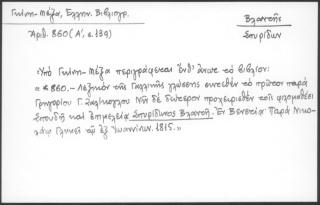 Γκίνη-Μέξα, Ελλην. Βιβλιογρ.
Αριθ. 860 (Α', σ. 139)
Βλαντής
Σπυρίδων
Υπό Γκίνη-Μέξα περιγράφεται ένθ' άνωτ. το βιβλίον:
« *860.— Λεξικόν της Γαλλικής γλώσσης συντεθέν το πρώτον παρά
Γρηγορίου Γ. Ζαλίκογλου Νῦν δε δεύτερον προχειρισθέν τοις φιλομαθέσι
Σπουδή και επιμελεία Σπυρίδωνος Βλαντή. Εν Βενετία Παρά Νικο-
λάω Γλυκεί τω εξ Ιωαννίνων. 1815.»